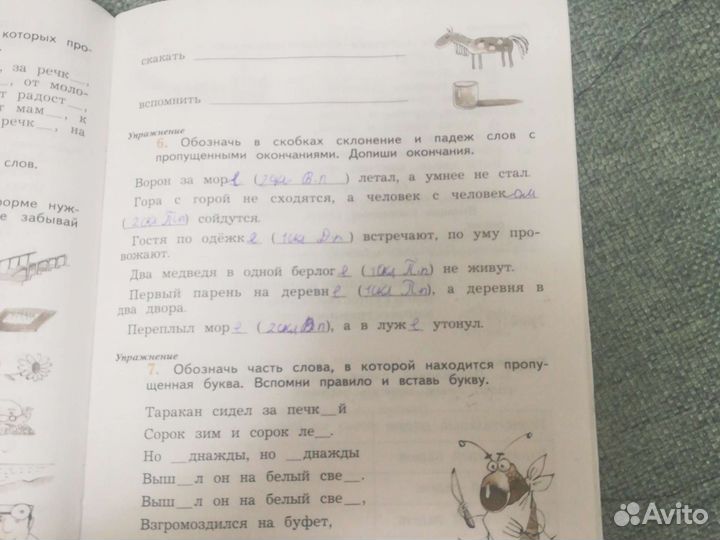 которых про-
скакать
, за речк ,
, от моло-
т радост ,
т мам , к
речк , на
вспомнить
слов.
орме нуж-
е забывай
Упражнение
6. Обозначь в скобках склонение и падеж слов с
пропущенными окончаниями. Допиши окончания.
Ворон за море (2скл В.п) летал, а умнее не стал.
Гора с горой не сходятся, а человек с человеком
(2скл П.п) сойдутся.
Гостя по одёжке (1скл Д.п) встречают, по уму про-
вожают.
Два медведя в одной берлоге (1скл П.п) не живут.
Первый парень на деревне (1скл П.п), а деревня в
два двора.
Переплыл море (2скл В.п), а в луже утонул.
Упражнение
7. Обозначь часть слова, в которой находится пропу-
щенная буква. Вспомни правило и вставь букву.
Таракан сидел за печк__й
Сорок зим и сорок ле__.
Но __днажды, но __днажды
Выш__л он на белый све__.
Выш__л он на белый све__,
Взгромоздился на буфет,
Avito